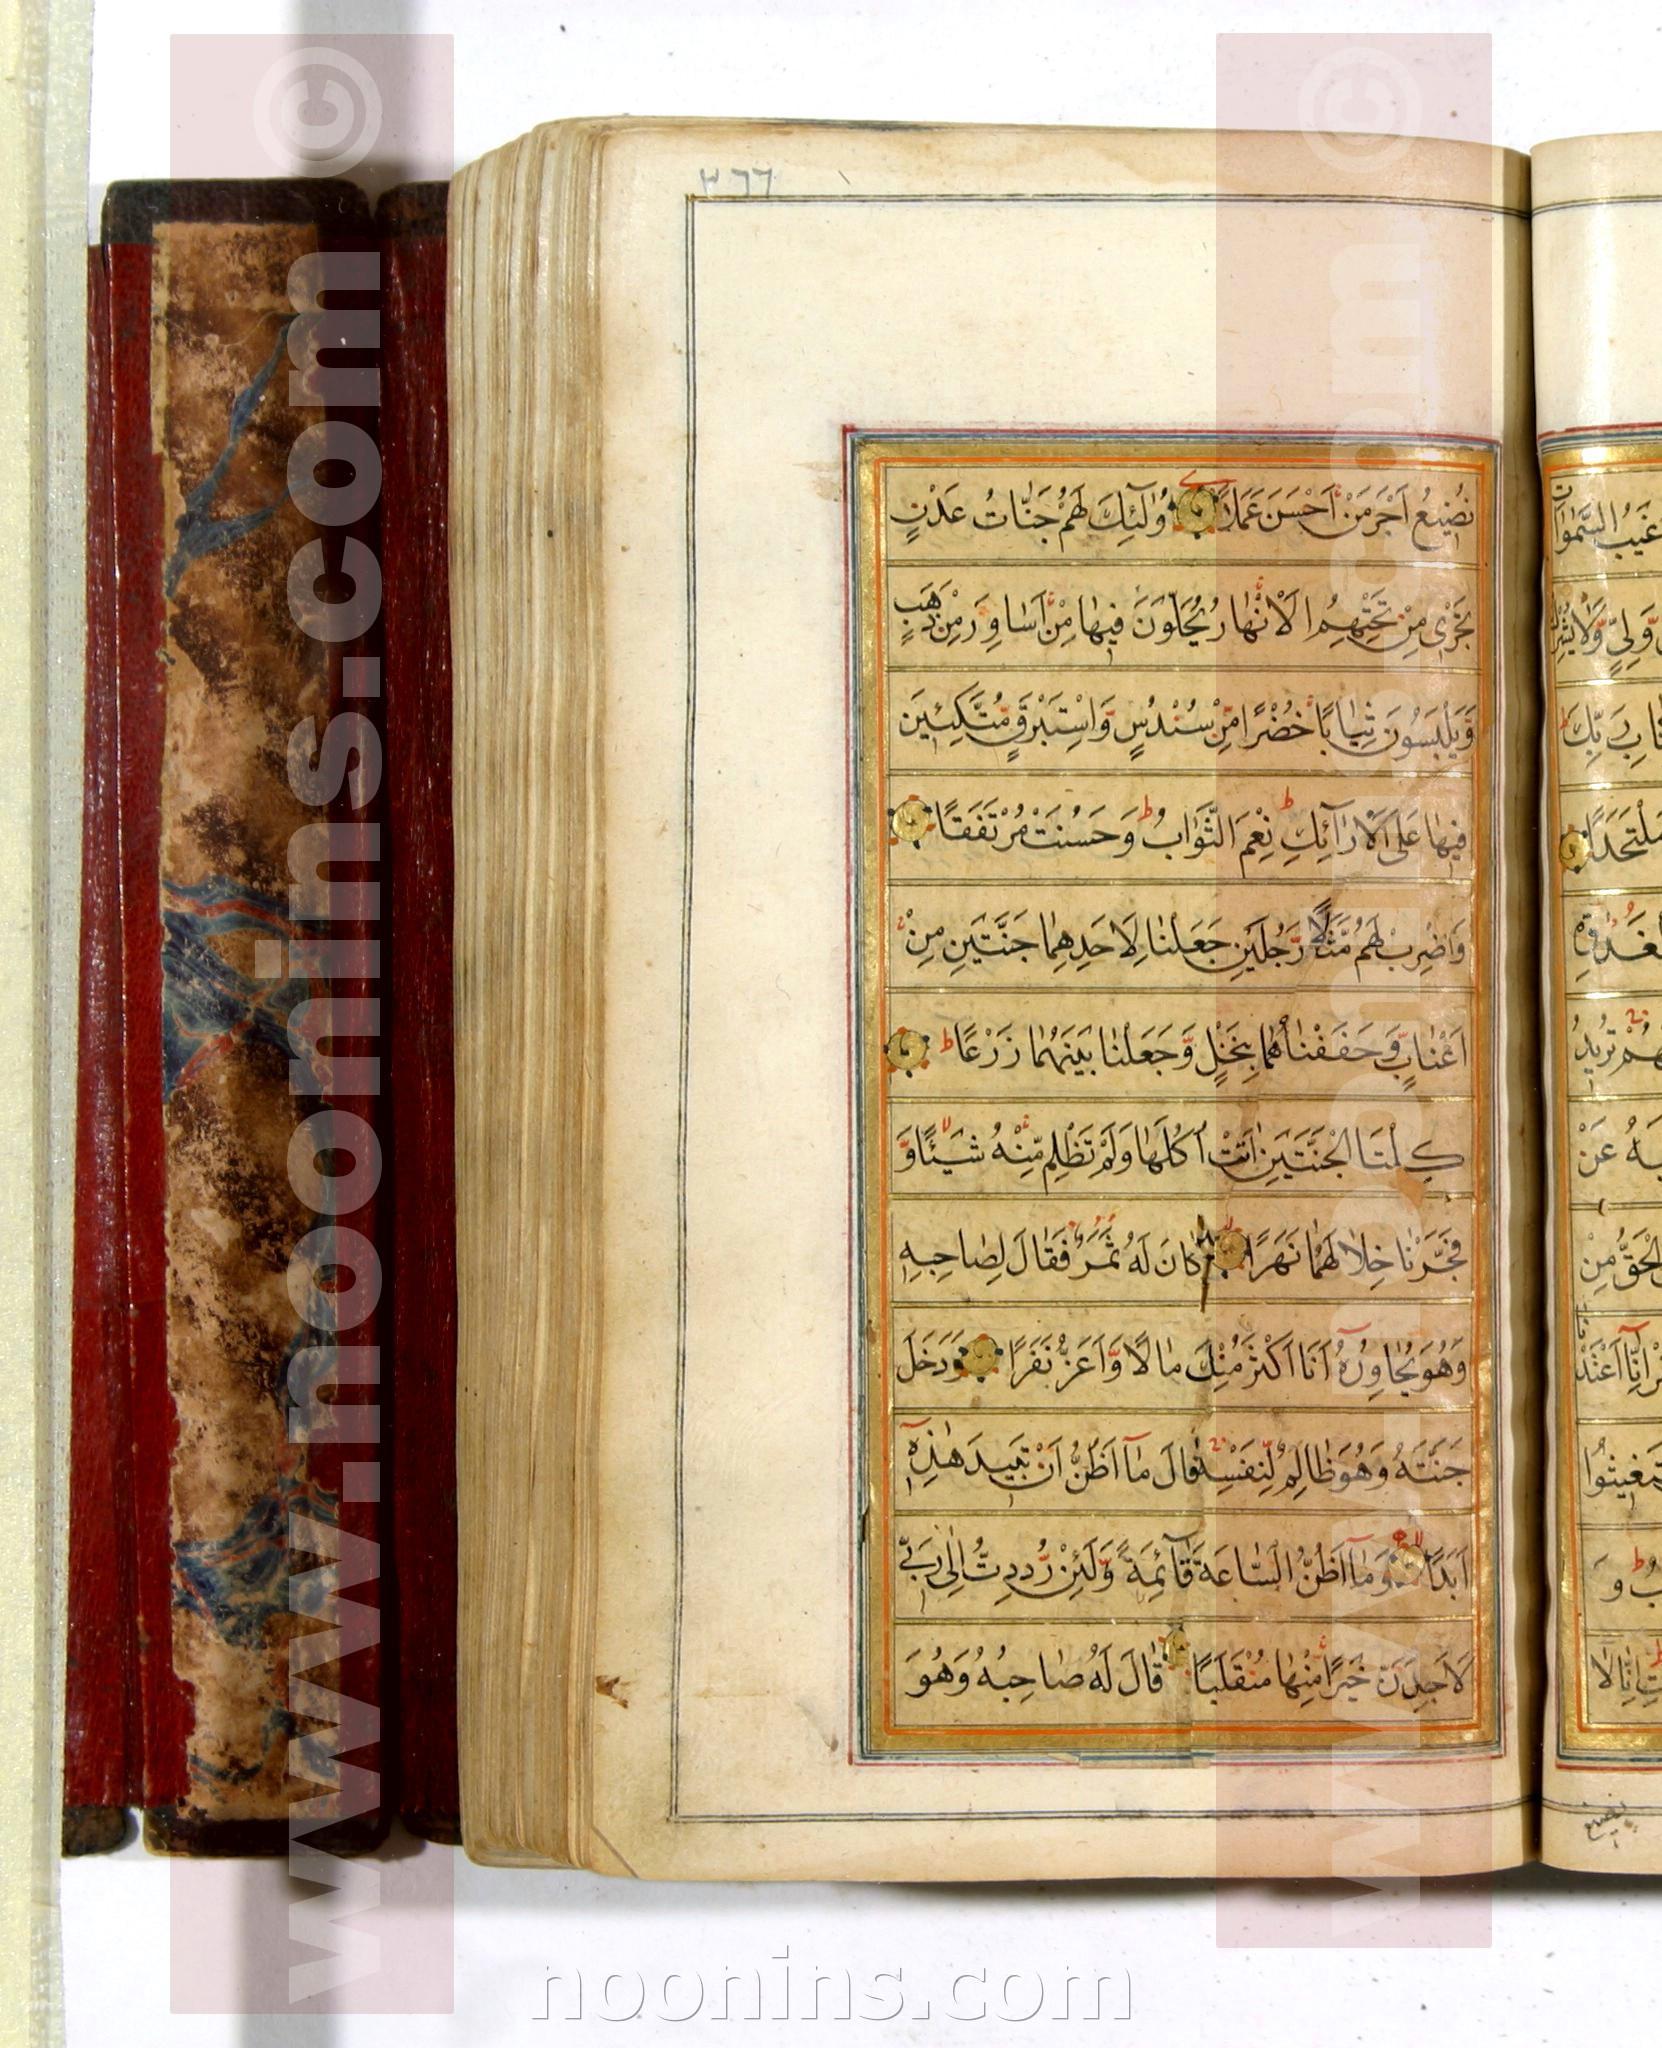 ٣٦٦
نُضِيعُ اَجْرَ مَنْ اَحْسَنَ عَمَلًا اُولٰٓئِكَ لَهُمْ جَنّٰاتُ عَدْنٍ
تَجْرٖى مِنْ تَحْتِهِمُ الْاَنْهٰارُ يُحَلَّوْنَ فٖيهٰا مِنْ اَسٰاوِرَ مِنْ ذَهَبٍ
وَّيَلْبَسُونَ ثِيٰابًا خُضْرًا مِّنْ سُنْدُسٍ وَّاِسْتَبْرَقٍ مُّتَّكِئٖينَ
فٖيهٰا عَلَى الْاَرٰآئِكِ ط نِعْمَ الثَّوٰابُ ط وَحَسُنَتْ مُرْتَفَقًا
وَاضْرِبْ لَهُمْ مَّثَلًا رَّجُلَيْنِ جَعَلْنٰا لِاَحَدِهِمٰا جَنَّتَيْنِ مِنْ
اَعْنٰابٍ وَّحَفَفْنٰاهُمٰا بِنَخْلٍ وَّجَعَلْنٰا بَيْنَهُمٰا زَرْعًا ط
كِلْتَا الْجَنَّتَيْنِ اٰتَتْ اُكُلَهٰا وَلَمْ تَظْلِمْ مِّنْهُ شَيْئًا لا وَّ
فَجَّرْنٰا خِلٰالَهُمٰا نَهَرًا وَكٰانَ لَهُ ثَمَرٌ فَقٰالَ لِصٰاحِبِهٖ
وَهُوَ يُحٰاوِرُهُ اَنَا اَكْثَرُ مِنْكَ مٰالًا وَّاَعَزُّ نَفَرًا وَدَخَلَ
جَنَّتَهُ وَهُوَ ظٰالِمٌ لِّنَفْسِهٖ قٰالَ مٰآ اَظُنُّ اَنْ تَبٖيدَ هٰذِهٖ
اَبَدًا وَمٰآ اَظُنُّ السّٰاعَةَ قٰآئِمَةً وَّلَئِنْ رُّدِدْتُ اِلٰى رَبّٖى
لَاَجِدَنَّ خَيْرًا مِنْهٰا مُنْقَلَبًا قٰالَ لَهُ صٰاحِبُهُ وَهُوَ
نضيع
www.noonins.com ©
www.noonins.com ©
noonins.com